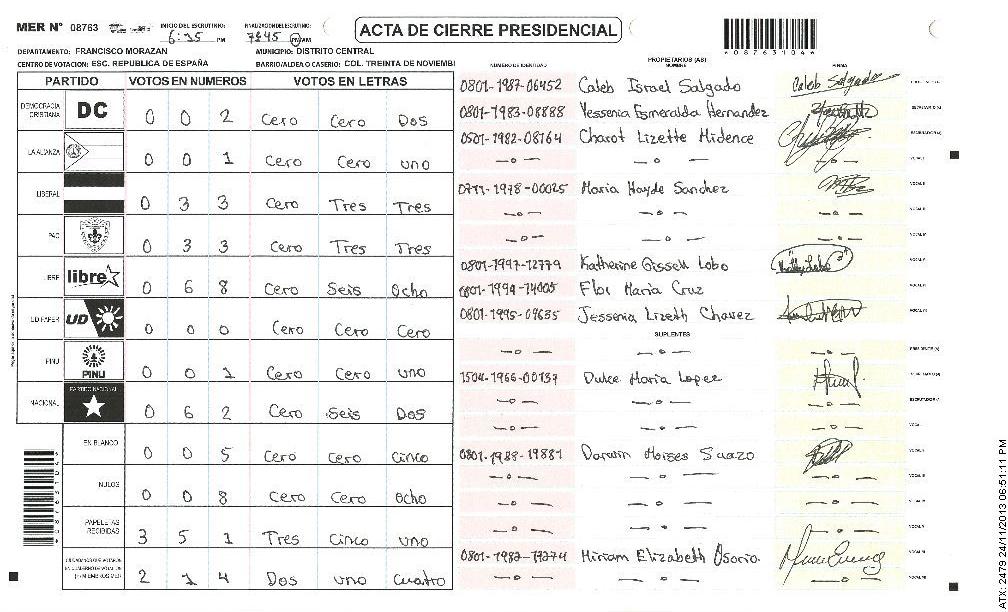 MER N° 08763 INICIO DEL ESCRUTINIO: 6:25 PM FINALIZACION DEL ESCRUTINIO: PM/AM
ACTA DE CIERRE PRESIDENCIAL
DEPARTAMENTO: FRANCISCO MORAZAN MUNICIPIO: DISTRITO CENTRAL
CENTRO DE VOTACION: ESC. REPUBLICA DE ESPAÑA BARRIO/ALDEA O CASERIO: COL. TREINTA DE NOVIEMBI
PARTIDO VOTOS EN NUMEROS VOTOS EN LETRAS
DEMOCRACIA CRISTIANA DC 0 0 2 Cero Cero Dos
LA ALIANZA 0 0 1 Cero Cero uno
LIBERAL 0 3 3 Cero Tres Tres
PAC 0 3 3 Cero Tres Tres
LIBRE libre 0 6 8 Cero Seis Ocho
UD FAPER UD 0 0 0 Cero Cero Cero
PINU PINU 0 0 1 Cero Cero uno
NACIONAL PARTIDO NACIONAL 0 6 2 Cero Seis Dos
EN BLANCO 0 0 5 Cero Cero Cinco
NULOS 0 0 8 Cero Cero Ocho
PAPELETAS RECIBIDAS 3 5 1 Tres Cinco uno
2 1 4 Dos uno Cuatro
PROPIETARIOS (AS)
NUMERO DE IDENTIDAD NOMBRE FIRMA
0801-1987-06452 Caleb Israel Salgado Caleb Salgado
0801-1983-08888 Yessenia Esmeralda Hernandez
0501-1982-08764 Charot Lizette Midence
Maria Hayde Sanchez
Katherine Gissell Lobo
Flor Maria Cruz
0801-1995-09635 Jessenia Lizeth Chavez
SUPLENTES
1504-1966-00137 Dulce Maria Lopez
0801-1988-19881 Darwin Moises Suazo
Miriam Elizabeth Osorio.
ATX: 2479 24/11/2013 06:51:11 PM